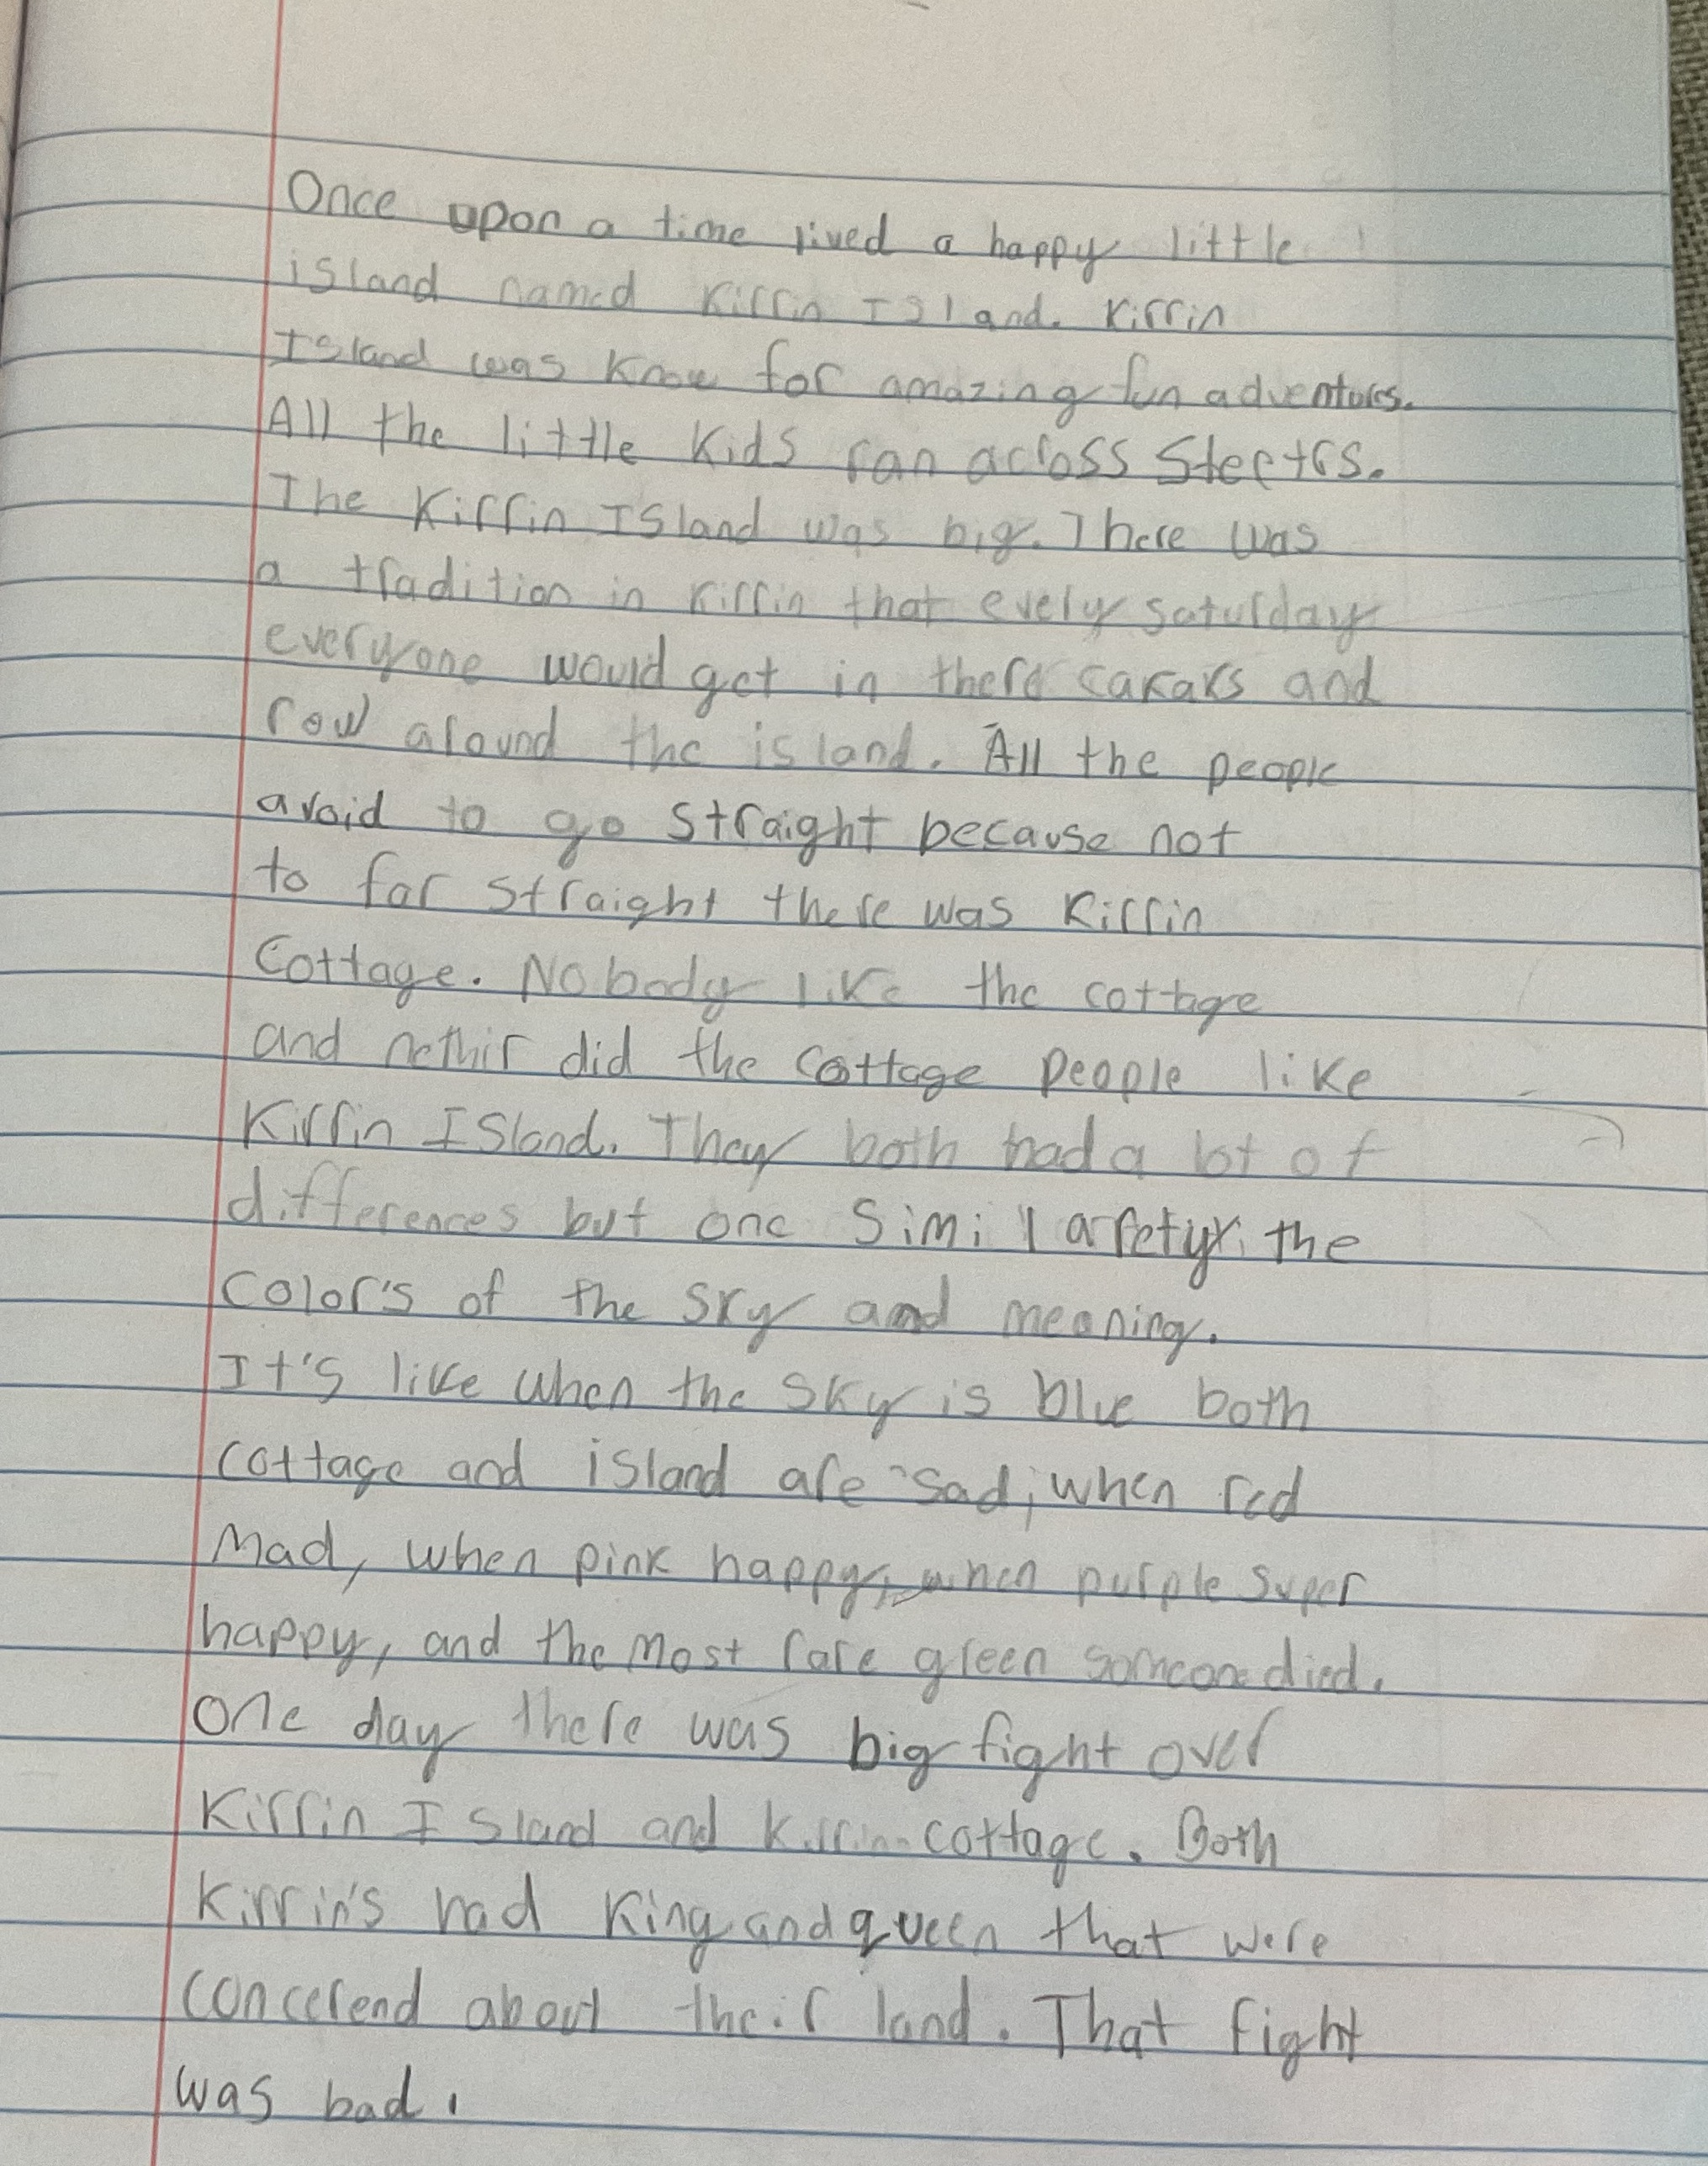 Once upon a time lived a happy little
island named Kirrin Island. Kirrin
Island was know for amazing fun adventures.
All the little kids ran across Steetrs.
The Kirrin Island was big. There was
a tradition in Kirrin that every saturday
everyone would get in there cakaks and
row around the island. All the people
avoid to go straight because not
to far straight there was Kirrin
Cottage. Nobody like the cottage
and nethir did the cottage people like
Kirrin Island. They both had a lot of
differences but one Similaretyr the
color's of the sky and meaning.
It's like when the sky is blue both
cottage and island are sad, when red
Mad, when pink happy, when purple super
happy, and the most rare green someone died.
One day there was big fight over
Kirrin Island and Kirrin cottage. Both
Kirrin's had King and queen that were
concerend about their land. That fight
was bad.